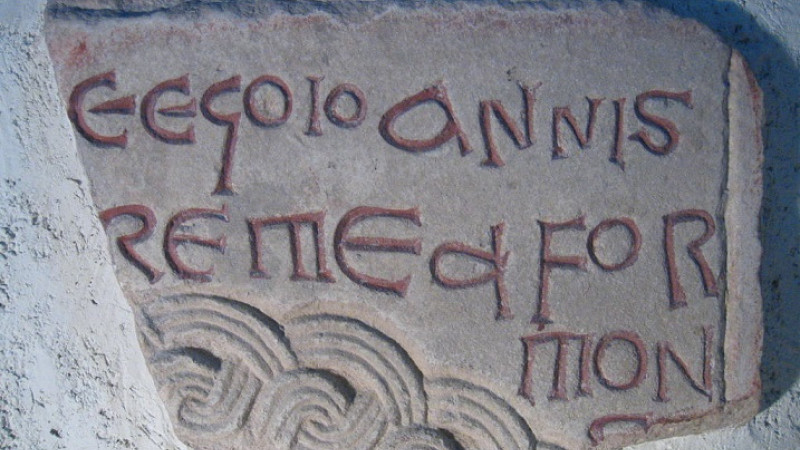 EEGOIOANNIS
REMEDFOR
MON